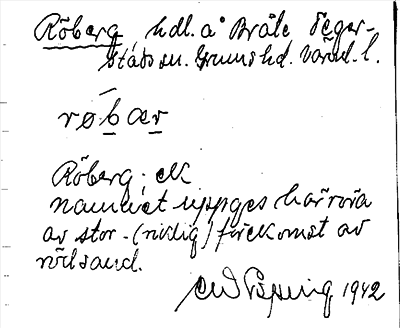 Röberg, hdl. å Bråle Seger-
stads sn. Grums hd. Värml. l.
røbær
Röberg: ek
namnet uppges härröra
av stor - (riklig) förekomst av
rödsand.
1942